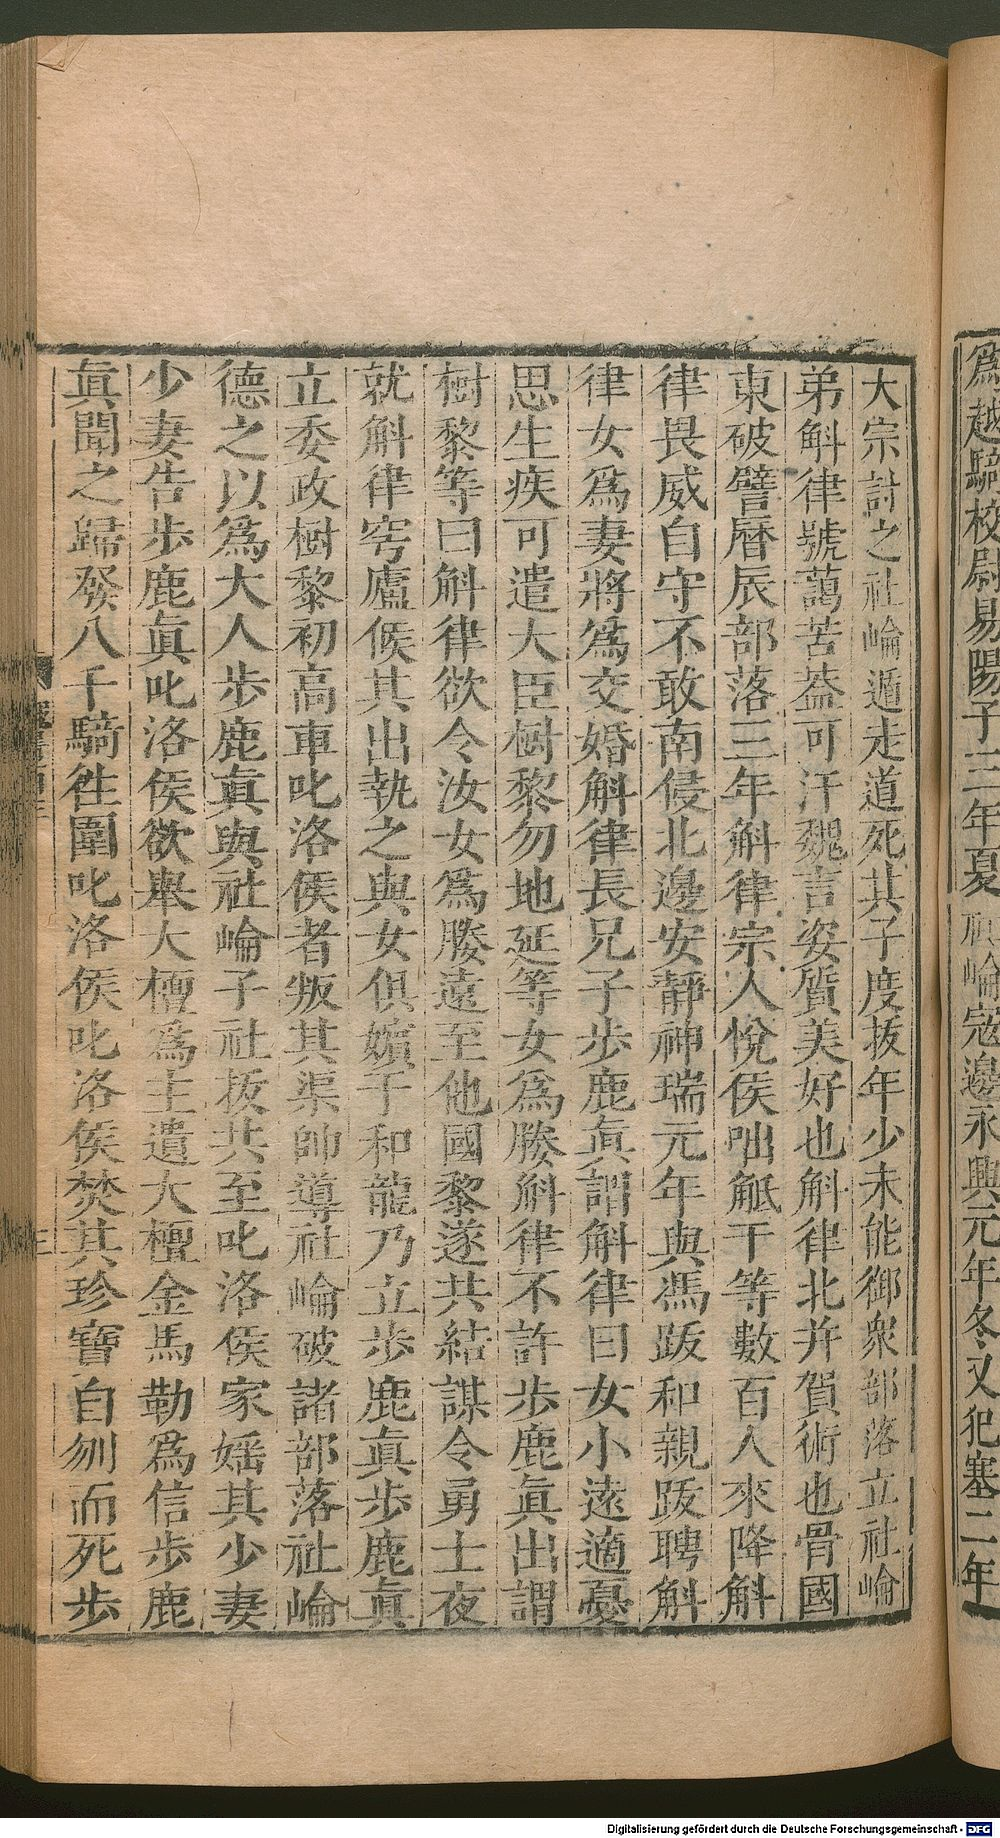 爲越騎校尉易陽子三年夏社崘寇邊永興元年冬又犯塞二年
大宗討之社崘遁走道死其子度拔年少未能御衆部落立社崘
弟斛律號藹苦葢可汗魏言姿質美好也斛律北并賀術也骨國
東破譬曆辰部落三年斛律宗人悅侯咄觝干等數百人來降斛
律畏威自守不敢南侵北邊安靜神瑞元年與馮跋和親跋聘斛
律女爲妻將爲交婚斛律長兄子步鹿眞謂斛律曰女小遠適憂
思生疾可遣大臣樹黎勿地延等女爲媵斛律不許步鹿眞出謂
樹黎等曰斛律欲令汝女爲媵遠至他國黎遂共結謀令勇士夜
就斛律穹廬候其出執之與女俱嬪于和龍乃立步鹿眞步鹿眞
立委政樹黎初高車叱洛侯者叛其渠帥導社崘破諸部落社崘
德之以爲大人步鹿眞與社崘子社拔共至叱洛侯家婬其少妻
少妻告步鹿眞叱洛侯欲舉大檀爲主遺大檀金馬勒爲信步鹿
眞聞之歸發八千騎徃圍叱洛侯叱洛侯焚其珍寶自刎而死步
三
Digitalisierung gefördert durch die Deutsche Forschungsgemeinschaft - DFG